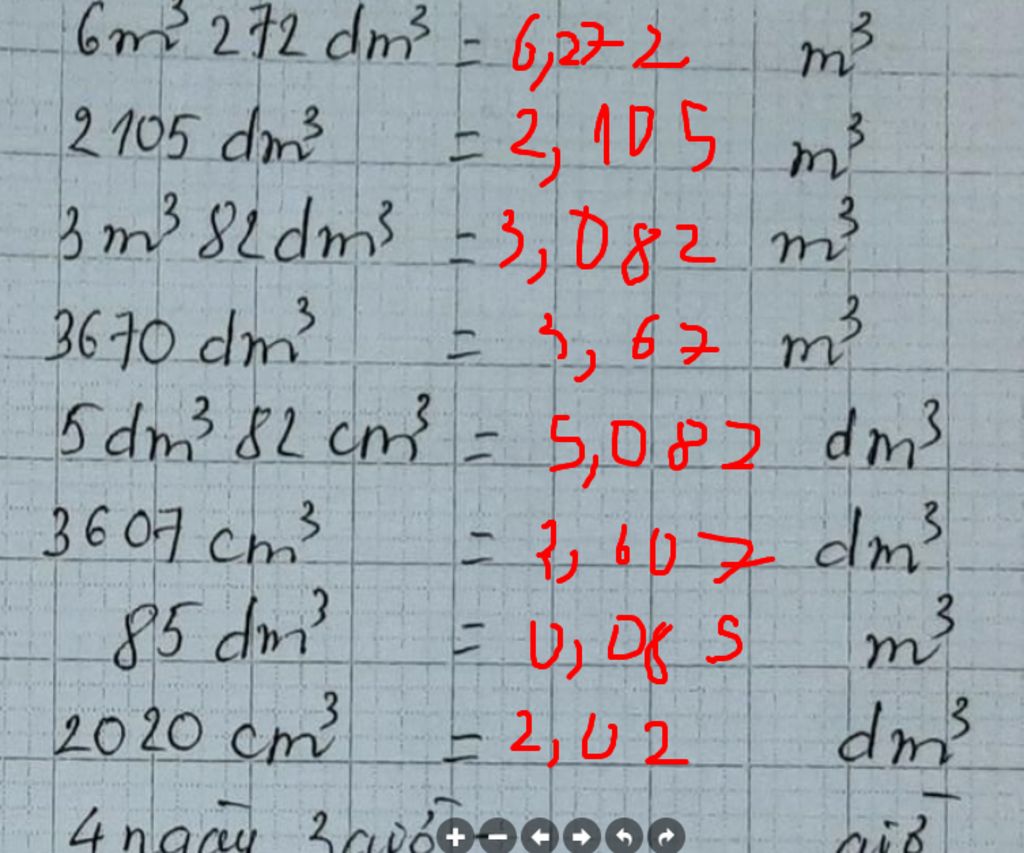 6m³ 272 dm³ = 6,272 m³
2105 dm³ = 2,105 m³
3 m³ 82 dm³ = 3,082 m³
3670 dm³ = 3,67 m³
5 dm³ 82 cm³ = 5,082 dm³
3607 cm³ = 3,607 dm³
85 dm³ = 0,085 m³
2020 cm³ = 2,02 dm³
4 ngày 3 giờ = giờ